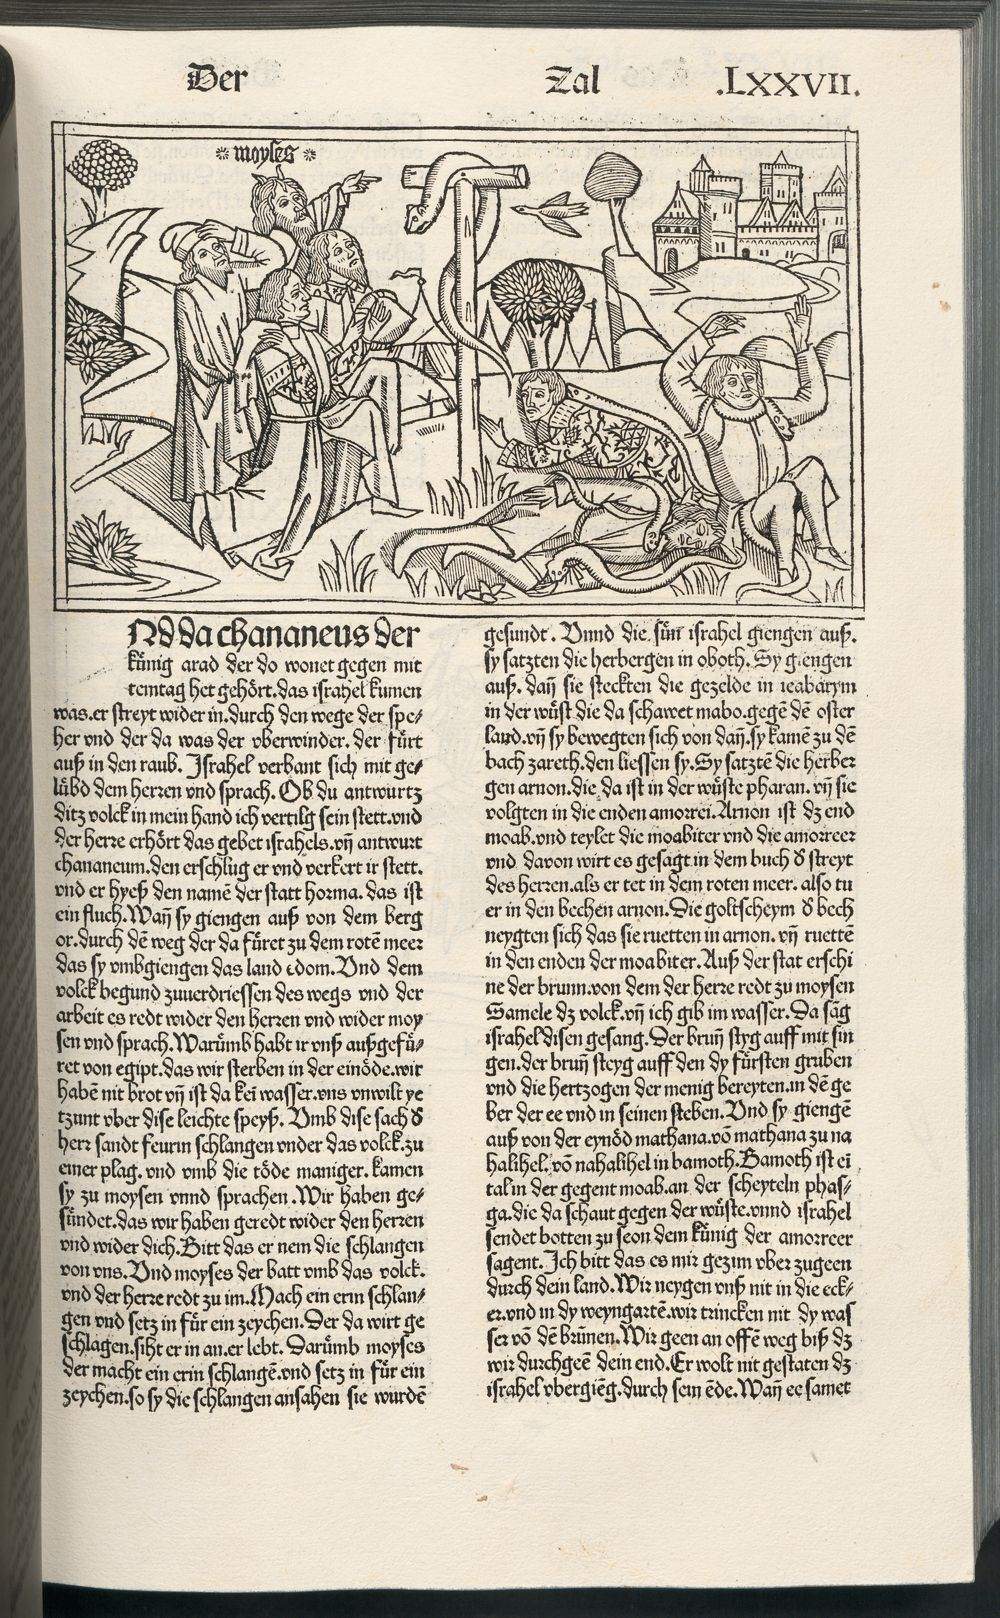 Der Zal .LXXVII.
moyses
Nd da chananeus der
künig arad der do wonet gegen mit
temtag het gehört.das israhel kumen
was.er streyt wider in.durch den wege der spe/
her vnd der da was der vberwinder. der fůrt
auß in den raub. Israhel verbant sich mit ge/
lübd dem herren vnd sprach. Ob du antwurtz
ditz volck in mein hand ich vertilg sein stett.vnd
der herre erhört das gebet israhels.vn̄ antwurt
chananeum.den erschlůg er vnd verkert ir stett.
vnd er hyeß den namē der statt horma. das ist
ein fluch.Wan̄ sy giengen auß von dem berg
or.durch dē weg der da fůret zu dem rotē meer
das sy vmbgiengen das land edom.Vnd dem
volck begund zuuerdriessen des wegs vnd der
arbeit es redt wider den herren vnd wider moy
sen vnd sprach.Warůmb habt ir vnß außgefů/
ret von egipt.das wir sterben in der einöde.wir
habē nit brot vn̄ ist da kei wasser.vns vnwilt ye
tzunt vber dise leichte speyß. Vmb dise sach d̕
herr sandt feurin schlangen vnder das volck.zu
einer plag. vnd vmb die töde maniger. kamen
sy zu moysen vnnd sprachen.Wir haben ge/
sündet.das wir haben geredt wider den herren
vnd wider dich.Bitt das er nem die schlangen
von vns.Vnd moyses der batt vmb das volck.
vnd der herre redt zu im.Mach ein erin schlan/
gen vnd setz in für ein zeychen.Der da wirt ge
schlagen.siht er in an.er lebt. Darůmb moyses
der macht ein erin schlangē.vnd setz in für ein
zeychen.so sy die schlangen ansahen sie wurdē
gesundt. Vnnd die sün israhel giengen auß.
sy satzten die herbergen in oboth. Sy giengen
auß. dan̄ sie steckten die gezelde in ieabarym
in der wüst die da schawet mabo.gegē dē oster
land.vn̄ sy bewegten sich von dan̄.sy kamē zu dē
bach zareth.den liessen sy.Sy satztē die herber
gen arnon.die da ist in der wüste pharan. vn̄ sie
volgten in die enden amorrei.Arnon ist dz end
moab.vnd teylet die moabiter vnd die amorreer
vnd davon wirt es gesagt in dem buch d̕ streyt
des herren.als er tet in dem roten meer. also tu
er in den bechen arnon.Die goltscheym d̕ bech
neygten sich das sie ruetten in arnon. vn̄ ruettē
in den enden der moabiter.Auß der stat erschi
ne der brunn.von dem der herre redt zu moysen
Samele dz volck.vn̄ ich gib im wasser.Da sāg
israhel disen gesang.Der brun̄ styg auff mit sin
gen.der brun̄ steyg auff den dy fürsten gruben
vnd die hertzogen der menig bereyten.in dē ge
ber der ee vnd in seinen steben.Vnd sy giengē
auß von der eynöd mathana.vō mathana zu na
halihel.vō nahalihel in bamoth.Bamoth ist ei
tal in der gegent moab.an der scheyteln phas/
ga.die da schaut gegen der wüste.vnnd israhel
sendet botten zu seon dem künig der amorreer
sagent.Ich bitt das es mir gezim vber zugeen
durch dein land.Wir neygen vnß nit in die eck/
er.vnd in dy weyngartē.wir trincken nit dy was
ser vō dē brünnen.Wir geen an offē weg biß dz
wir durchgeē dein end.Er wolt nit gestaten dz
israhel vbergiēg.durch sein ēde.Wan̄ ee samet